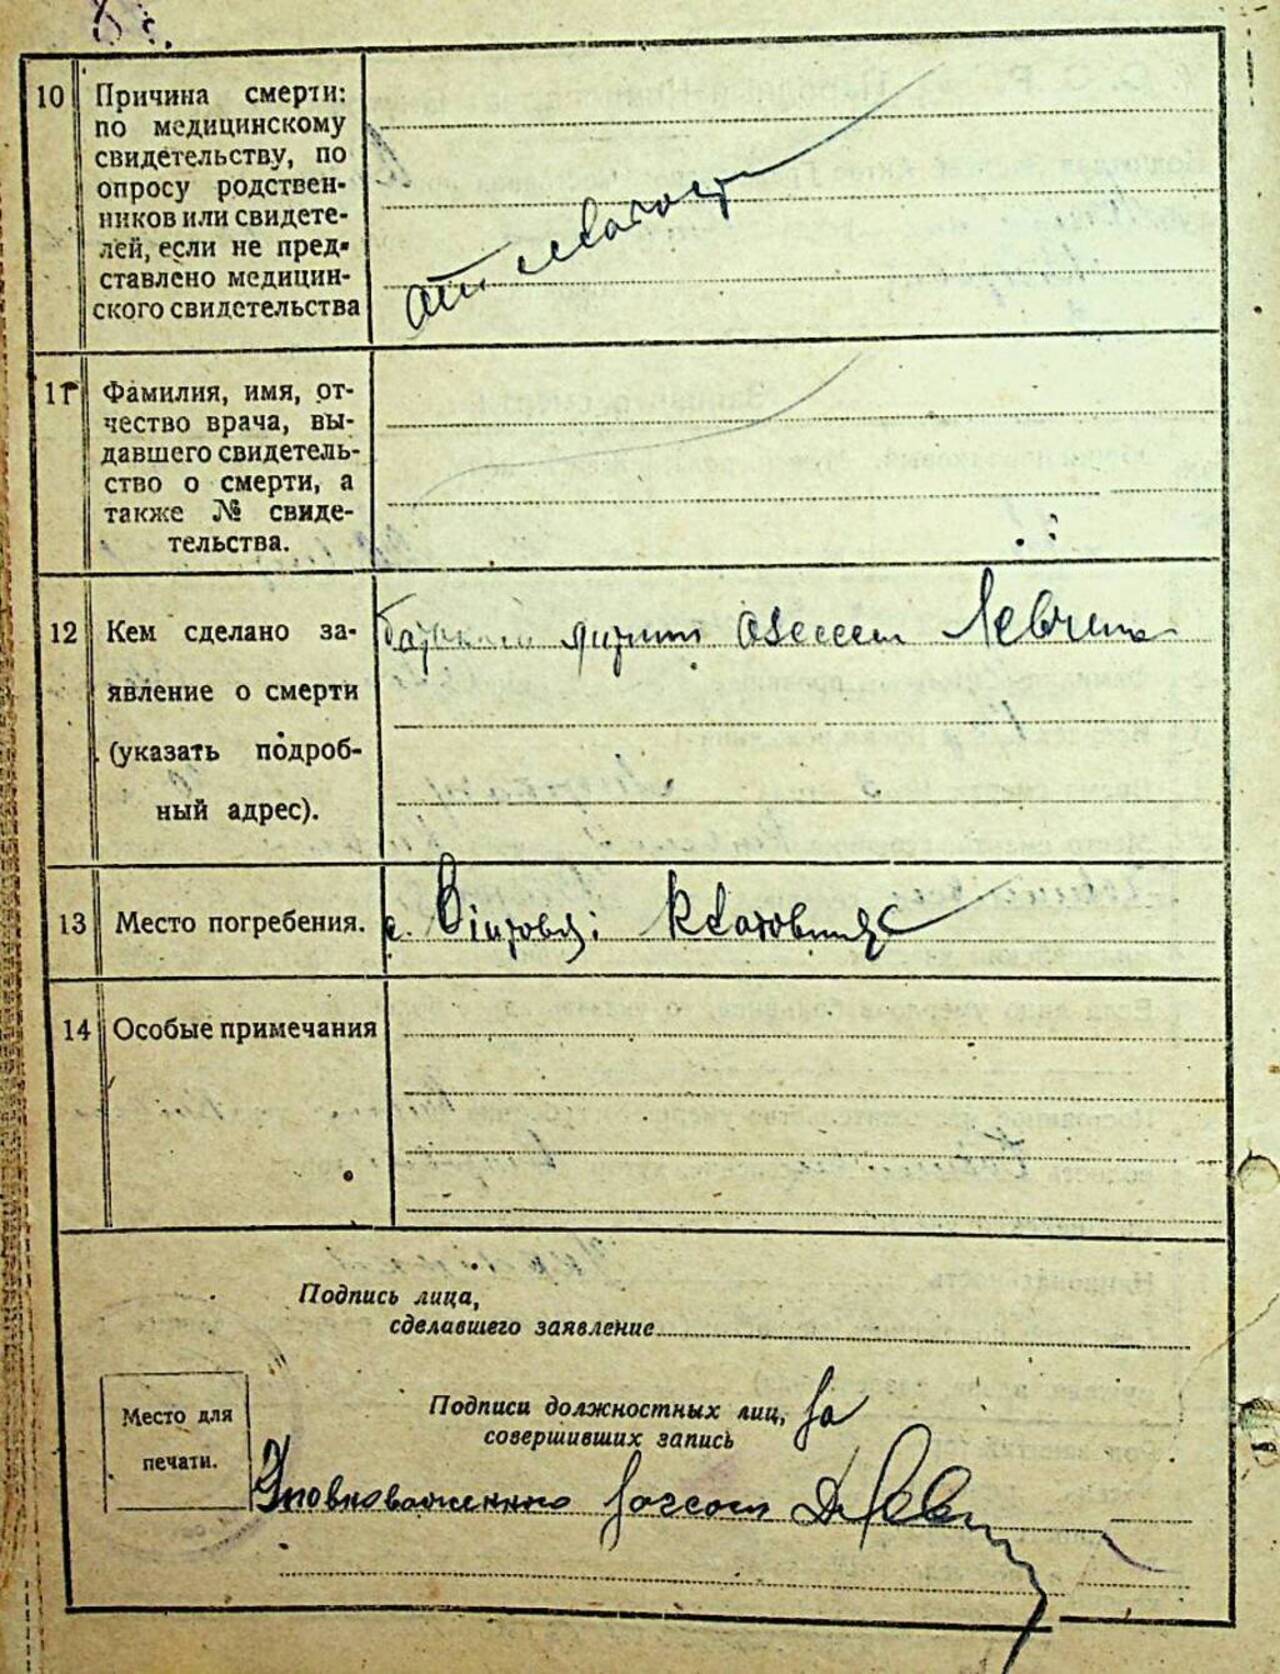 10 Причина смерти:
по медицинскому
свидетельству, по
опросу родствен-
ников или свидете-
лей, если не пред-
ставлено медицин-
ского свидетельства
11 Фамилия, имя, от-
чество врача, вы-
давшего свидетель-
ство о смерти, а
также № свиде-
тельства.
12 Кем сделано за-
явление о смерти
(указать подроб-
ный адрес).
Левчена
13 Место погребения.
с.
14 Особые примечания
Подпись лица,
сделавшего заявление
Подписи должностных лиц, За
совершивших запись
Место для
печати.
Уповноваженного Загсом